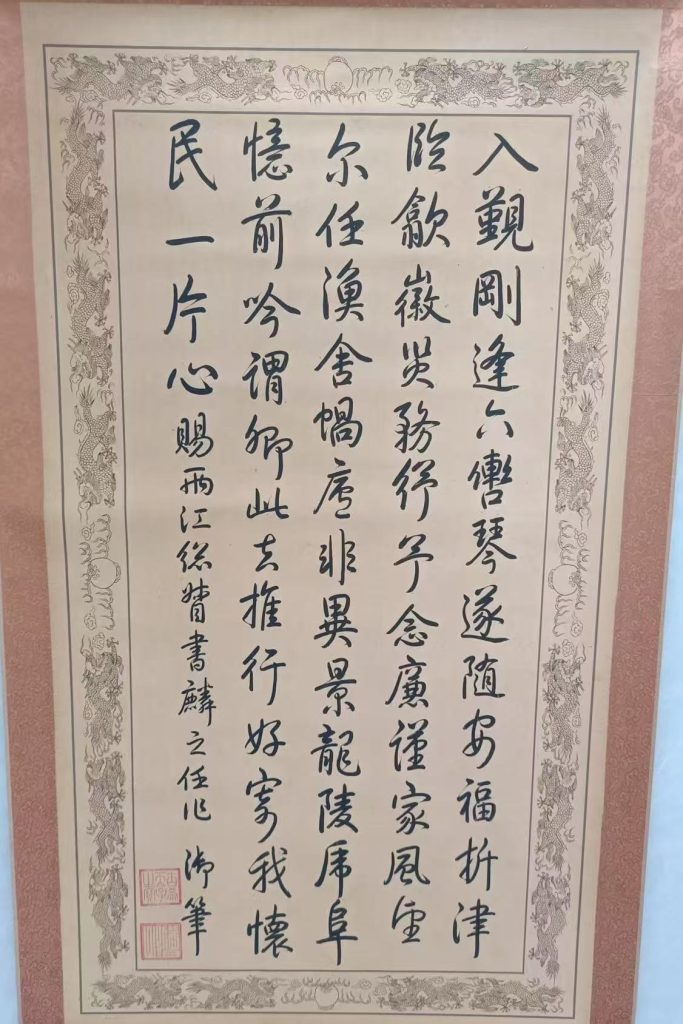 入覲剛逢六轡琴遂随安福析津
臨歙徽災務紓予念廉謹家風望
尔任漁舍蝸廬非異景龍陵虎阜
憶前吟謂卿此去推行好寄我懷
民一片心賜兩江緫督書麟之任作 御筆